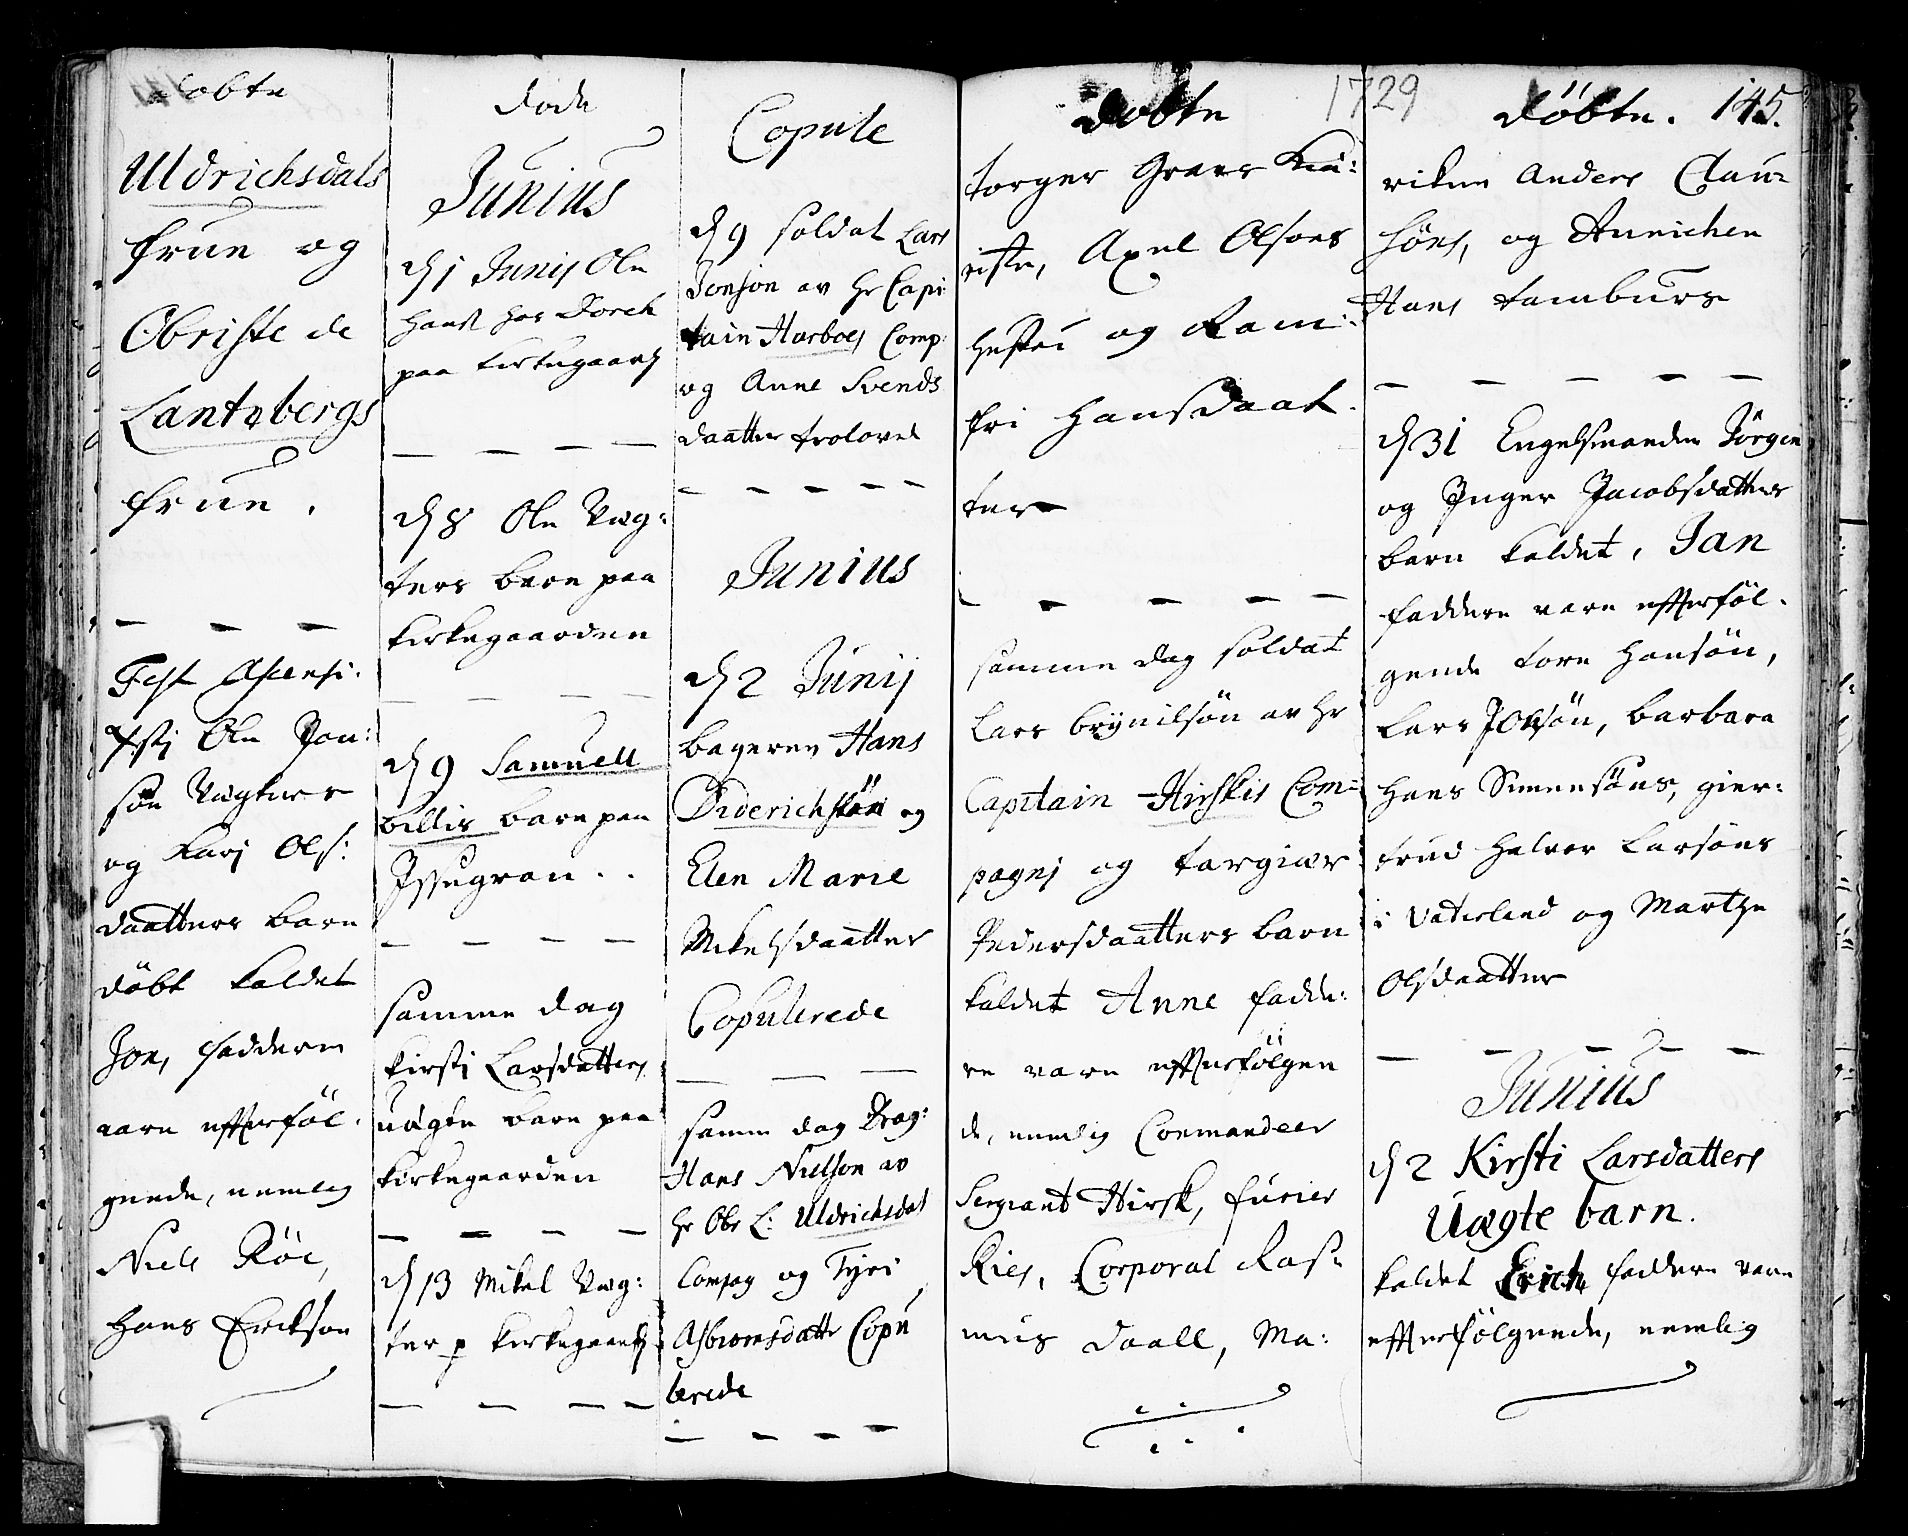 döbte
Uldrichsdals
frue og
Obriste de
Lantzbergs
frue.
Fest Ascensi:
Xsti Ole Jon:
søn Vegters
og Kari Ols:
daatters barn
döbt kaldet
Jon, fadderne
vare efterföl:
gende, nemlig
Niels Röe,
Hans Erikson
döde
Junius
d 1 Junij Ole
paa kirkegaard
d 8 Ole Væg:
ters barn paa
kirkegaarden
d 9 Samuell
billis barn paa
Issegran..
samme dag
Kirsti Larsdatters
uægte barn paa
kirkegaarden
d 13 Mikel Væg:
ter p kirkegaard
Copule
d 9 soldat Lars
Jonson av Hr Capi
tain Harboes Comp:
og Anne Svends
daatter trolovet
Junius
d 2 Junij
bageren Hans
Diderichsön og
Elen Marie
Mikelsdaatter
Copulerede
samme dag Drag:
Hans Nielson av
Hr Obr L: Uldrichsdal
Compag og Tyri
Asbiornsdatter Copu
lerede
döbte 1729
torger Graers
riste, Axel Olsons
hustru og Ram:
fri Hansdaat
ter
samme dag soldat
Lars brÿnilsön av Hr
Capitain Hirskis Com:
pagni og targiær
Pedersdaatters barn
kaldet Anne fadde:
re vare efterfölgen
de, nemlig Commandeer
Sergiant Hirsk, furier
Ries, Corporal Ras:
mus Daall, Ma:
döbte. 145.
Anders Clau:
söns, og Annichen
Hans tamburs
d 31 Engelsmanden Jörgen
og Inger Jacobsdatters
barn kaldet, Jan
faddere vare efterföl:
gende tore Hansön,
Lars Jonsön, barbara
Hans Simensöns, gier:
trud Halvor Larsöns
i Vaterland og Marthe
Olsdaatter
Junius
d 2 Kirsti Larsdatters
Uægte barn.
kaldet Erich faddere vare
efterfölgende, nemlig